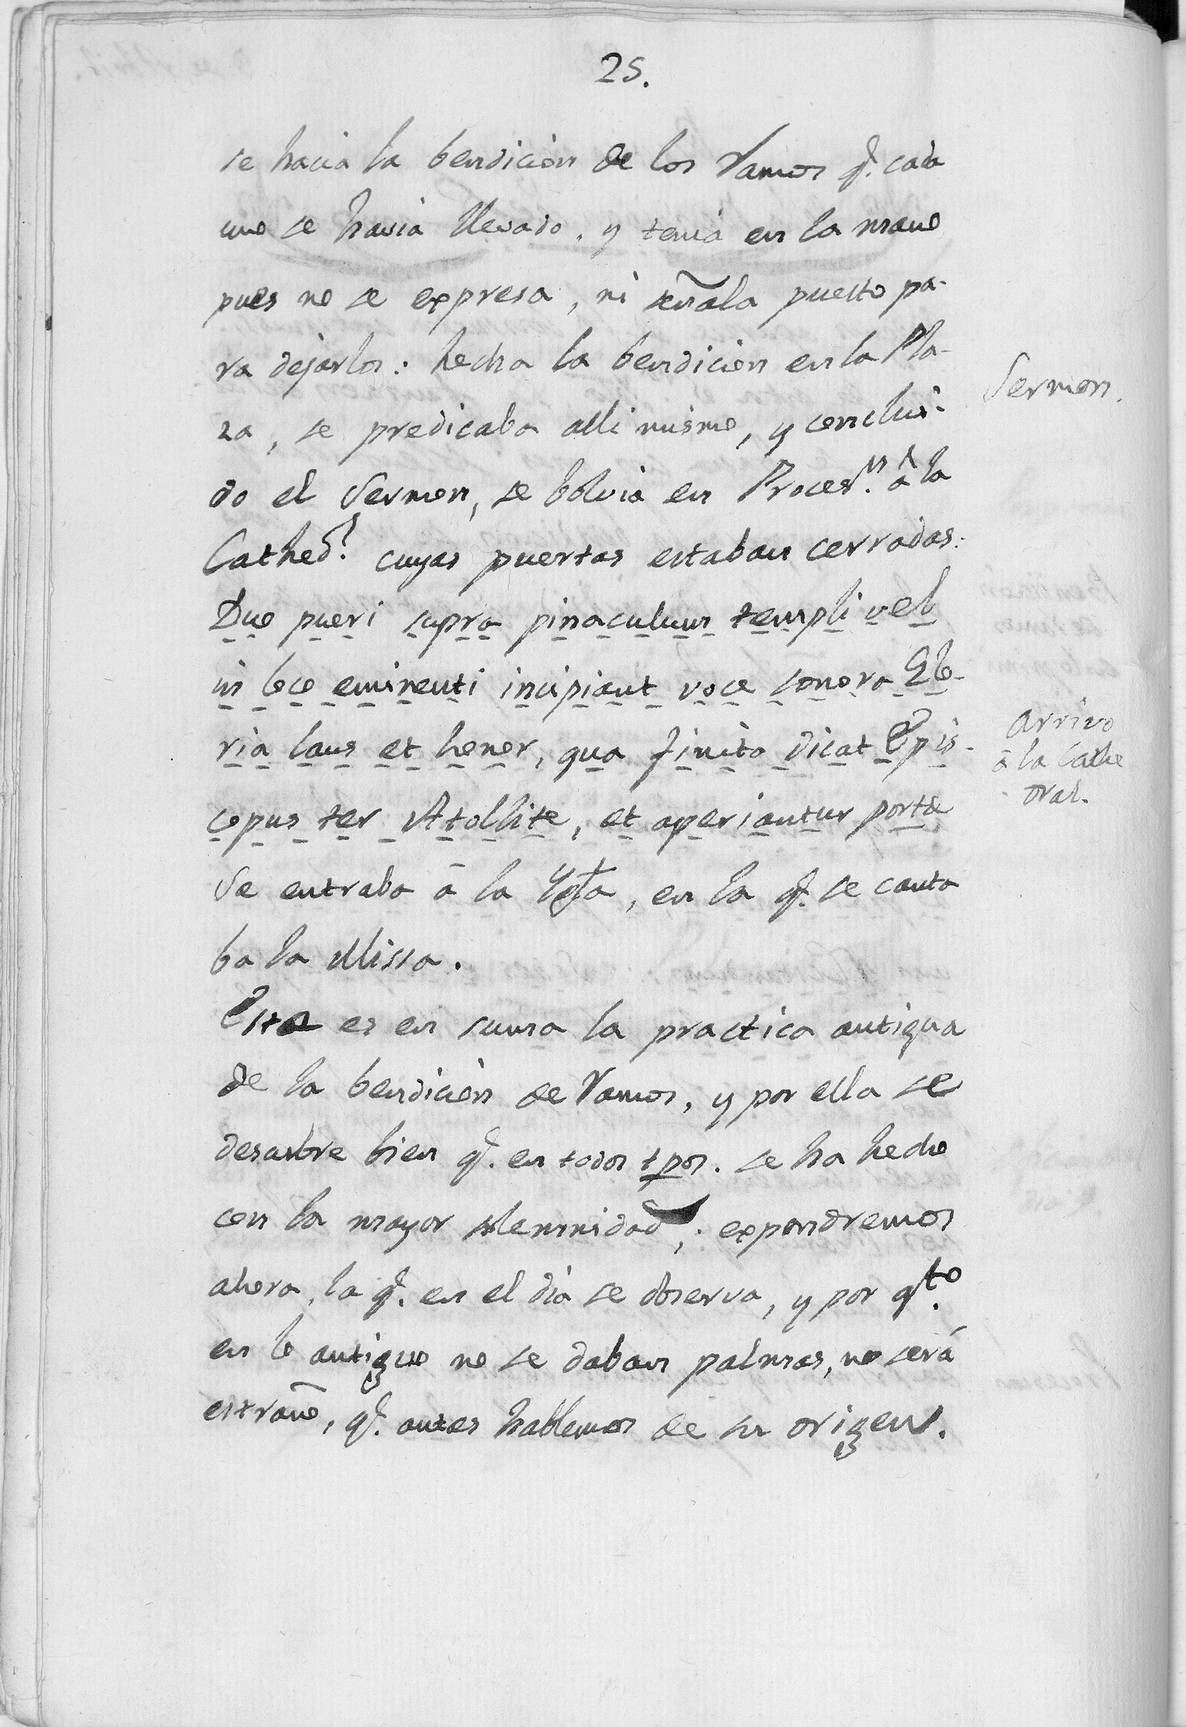 25.
se hacia la bendicion de los Ramos q.e cada
uno se havia llevado, y tenia en la mano
pues no se expresa, ni señala puesto pa-
ra dejarlos: hecha la bendicion en la Pla-
za, se predicaba alli mismo, y conclui-
do el Sermon, se bolvia en Proces.n â la
Cathed.l cuyas puertas estaban cerradas:
Duo pueri supra pinaculum templi vel
in loco eminenti incipiant voce sonora Glo-
ria laus et honor, qua finito dicat Epis-
copus ter Atollite, et aperiantur porte
Se entraba â la Ygl.a, en la q.e se canta
ba la Missa.
Esta es en suma la practica antigua
de la bendicion de Ramos, y por ella se
descubre bien q.e en todos tpos. se ha hecho
con la mayor solemnidad,: expondremos
ahora, la q.e en el dia se observa, y por q.to
en lo antiguo no se daban palmas, no será
estraño, q.e antes hablemos de su origen.
Sermon.
Arrivo
â la Cathe
dral.